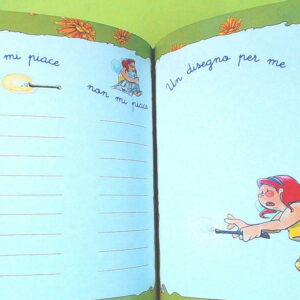 mi piace
non mi piace
Un disegno per me